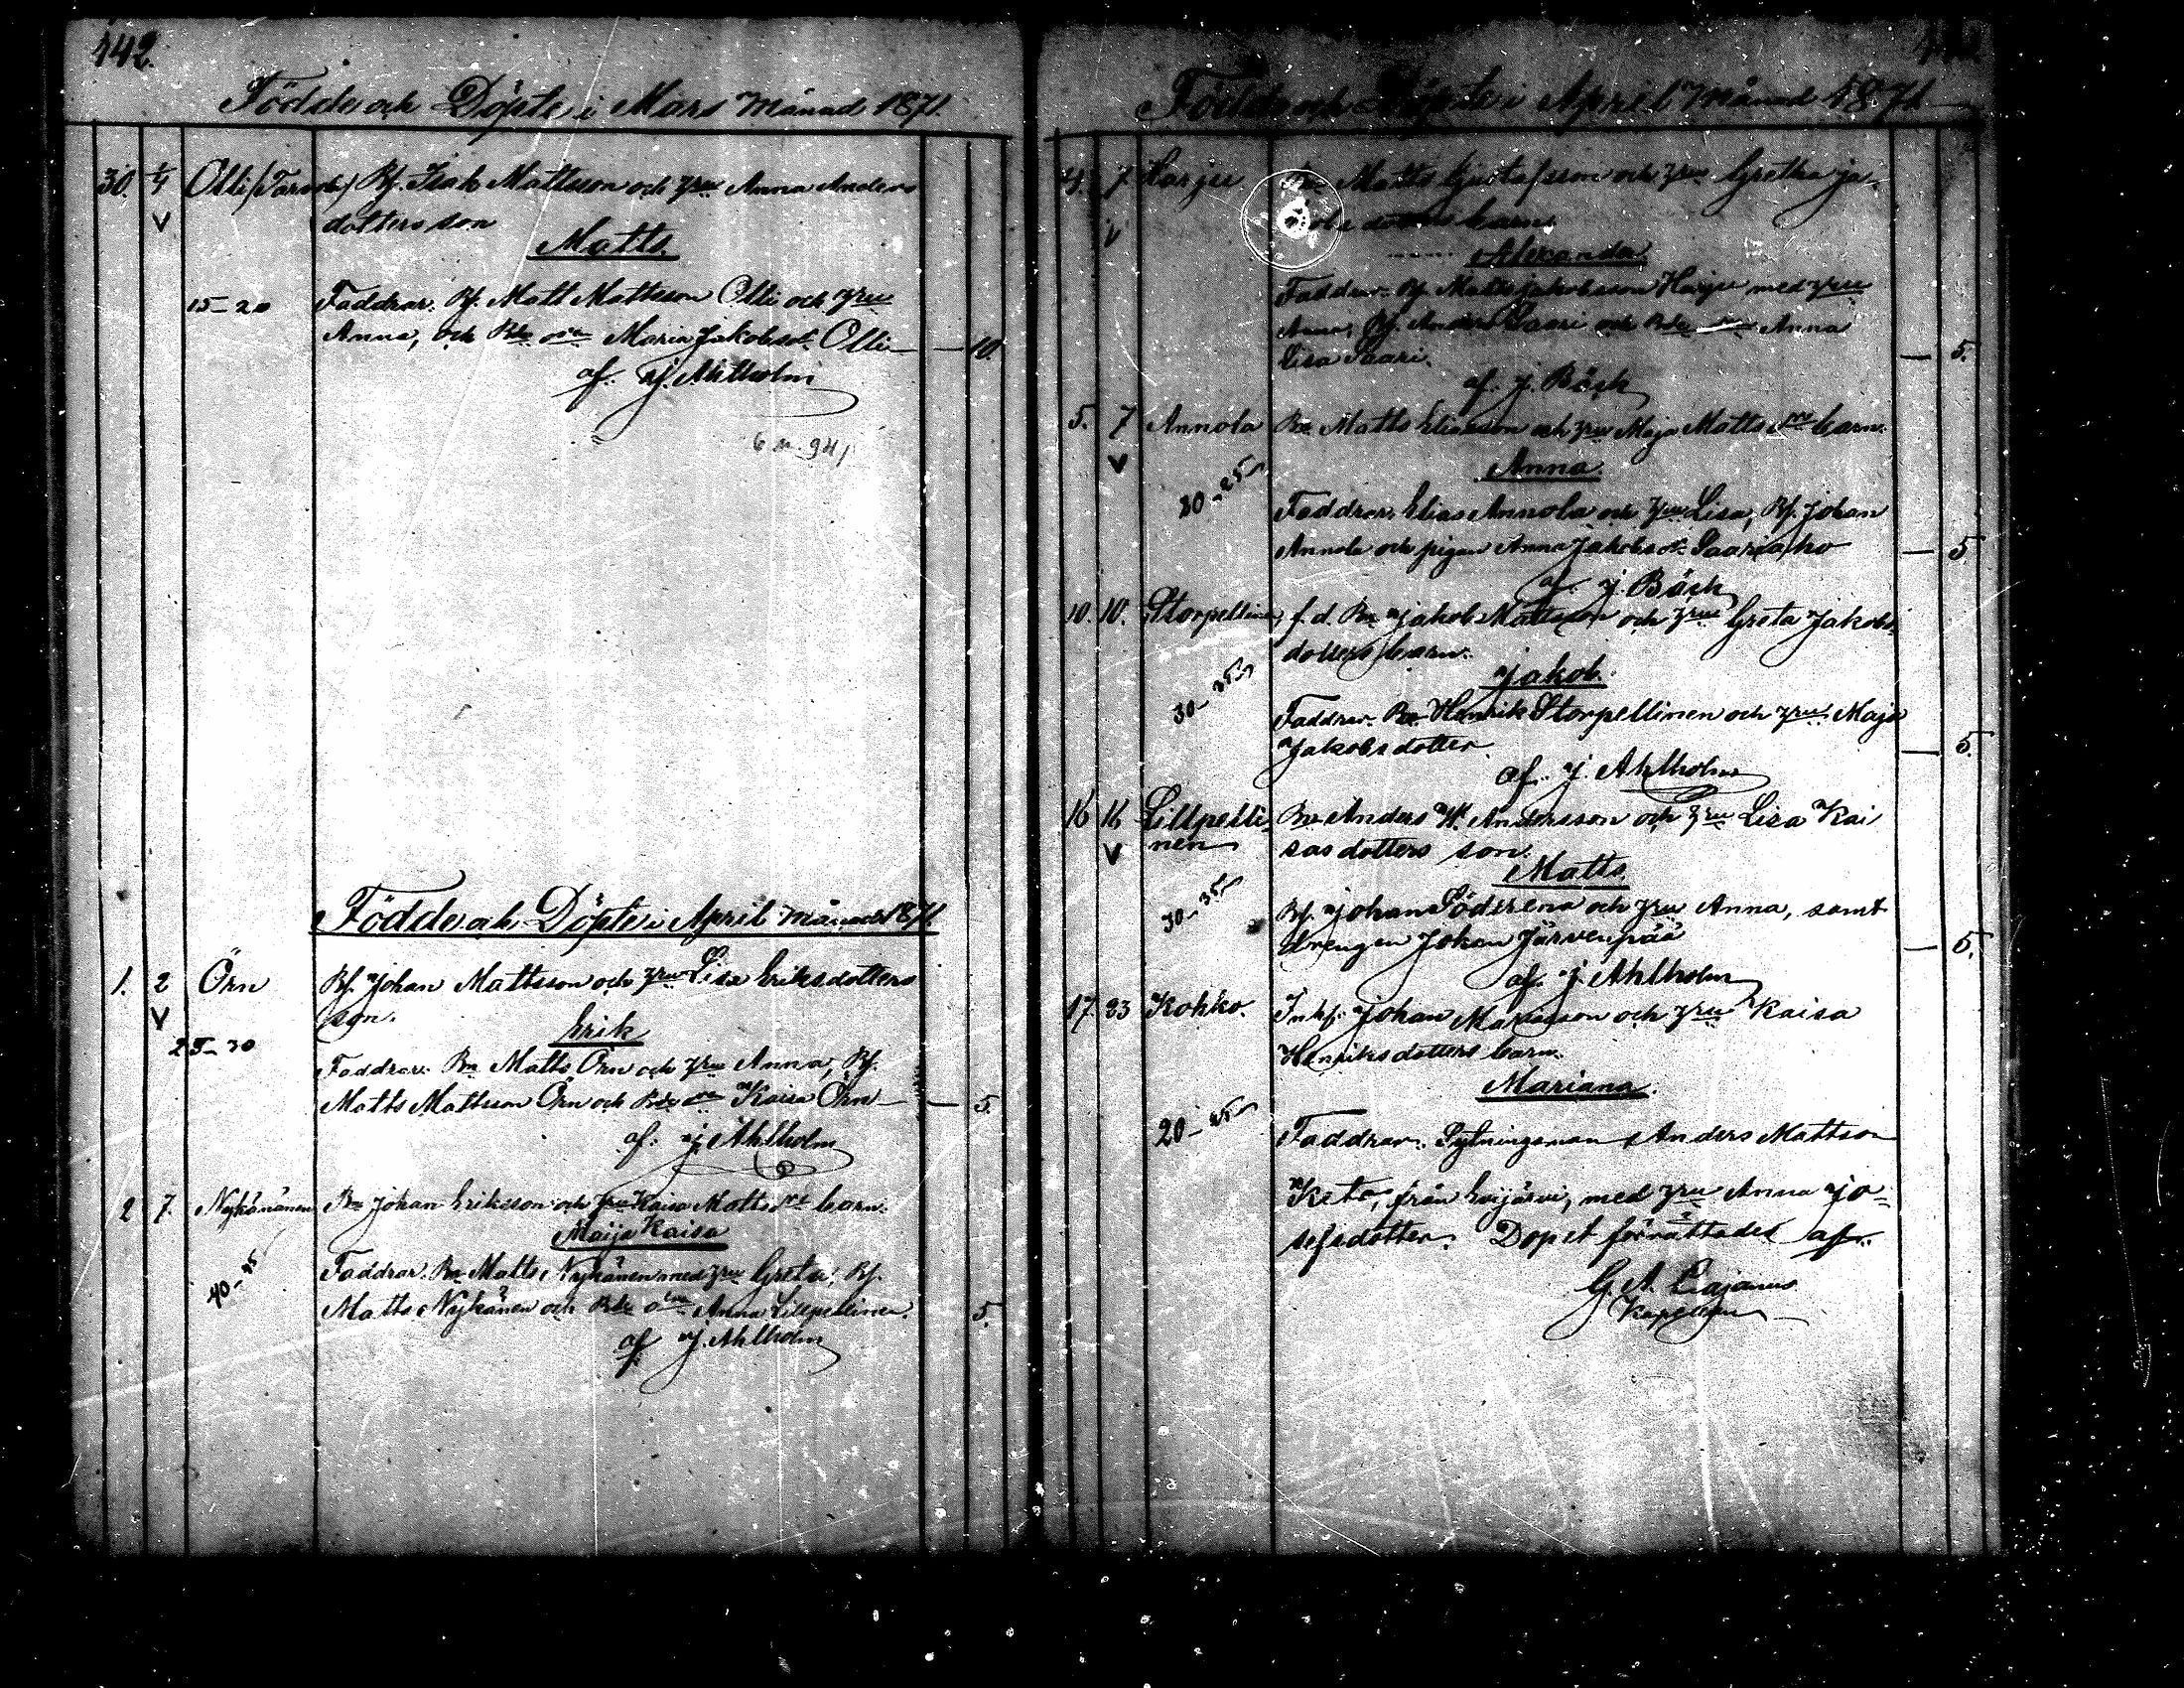 142.
Födde och Döpte i Mars månad 1871.
30. 1/4 Olli (Tarvola) Bs. Isak Mattsson och hru Anna Anders
dotters son
Matts.
15-20 Faddrar: Bs. Matt Mattsson Olli och hru
Anna, och Bde Maria Jakobsdr. Olli — 10.
af: J. Ahlholm
6 n. 94
Födde och Döpte i April månad 1871
1. 2 Örn Bs. Johan Mattsson och hru Lisa Eriksdotters
V son.
Erik
25-30
Faddrar: Bn Matts Örn och hru Anna, Bs.
Matts Mattsson Örn och Bde Kaisa Örn — 5.
af: J. Ahlholm
2 7. Nykänänen Bn Johan Eriksson och hru Kaisa Matts drs barn.
Maija Kaisa
40-45 Faddrar: Bn Matts Nykänen med hru Greta, Bs.
Matts Nykänen och Bde Anna Lillpellinen. 5.
af J. Ahlholm
Födde och Döpte i April månad 1871
4. 7. Harju Bn Matts Gustafsson och hru Gretha Ja-
V kobs dotters barn
Alexander
Faddrar: Bs. Matts Jakobsson Harju med hru
Anna, Bs. Anders Saari och Bde Anna
Lisa Saari. — 5.
af: J. Bäck
5. 7 Annola Bn Matts Eliasson och hru Maja Matts drs barn.
V Anna.
20-25
Faddrar: Elias Annola och hru Lisa, Bs. Johan
Annola och pigan Anna Jakobs dr. Saariaho — 5
af. J. Bäck
10. 10. Storpellinen, f.d. Bn Jakob Mattsson och hru Greta Jakobs-
dotters barn.
Jakob.
30-35
Faddrar: Bn Henrik Storpellinen och hru Maja
Jakobsdotter. — 5.
af: J. Ahlholm
16 16 Lillpelli- Bn Anders H. Andersson och hru Lisa Kai
V nen sas dotters son.
Matts.
30-35 Bs. Johan Söderena och hru Anna, samt
drengen Johan Järvenpää — 5.
af. J. Ahlholm
17. 23 Kohko. Inhs. Johan Mariasson och hru Kaisa
Henriksdotters barn.
Mariana.
20-25 Faddrar: Sytningsman Anders Mattson
Keto, från Evijärvi, med hru Anna Jo-
sefsdotter. Dopet förrättadet af:
G. A. Cajanus
Kapellan